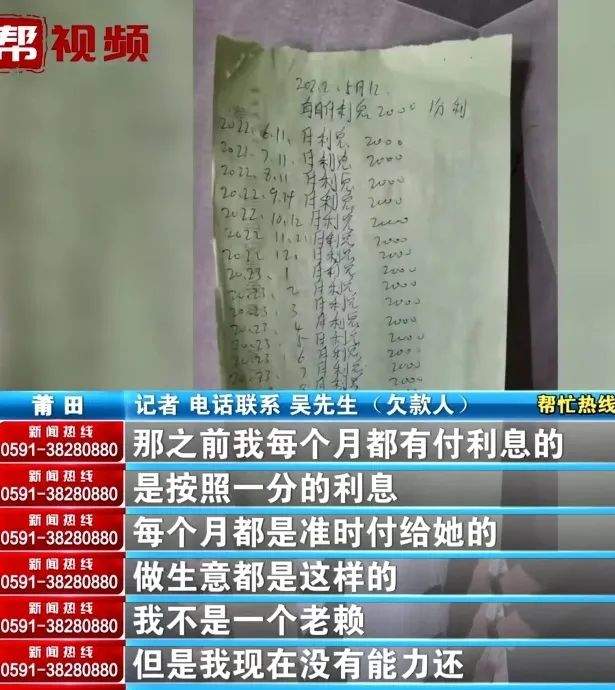 帮视频
2022.5月12.
月付利息2000 1分利
2022.6.11.月利息 2000
2022.7.11.月利息 2000
2022.8.11 月利息 2000
2022.9.14 月利息 2000
2022.10.12 月利息 2000
2022 11.21 月利息 2000
2022 12. 月利息 2000
2023. 1 月利息 2000
2023. 2 月利息 2000
2023. 3 月利息 2000
2023. 4 月利息 2000
2023. 5 月利息 2000
2023. 6 月利息 2000
2023. 7 月利息 2000
莆田 记者 电话联系 吴先生（欠款人） 帮忙热线
新闻热线
0591-38280880
那之前我每个月都有付利息的
新闻热线
0591-38280880
是按照一分的利息
新闻热线
0591-38280880
每个月都是准时付给她的
新闻热线
0591-38280880
做生意都是这样的
新闻热线
0591-38280880
我不是一个老赖
新闻热线
0591-38280880
但是我现在没有能力还